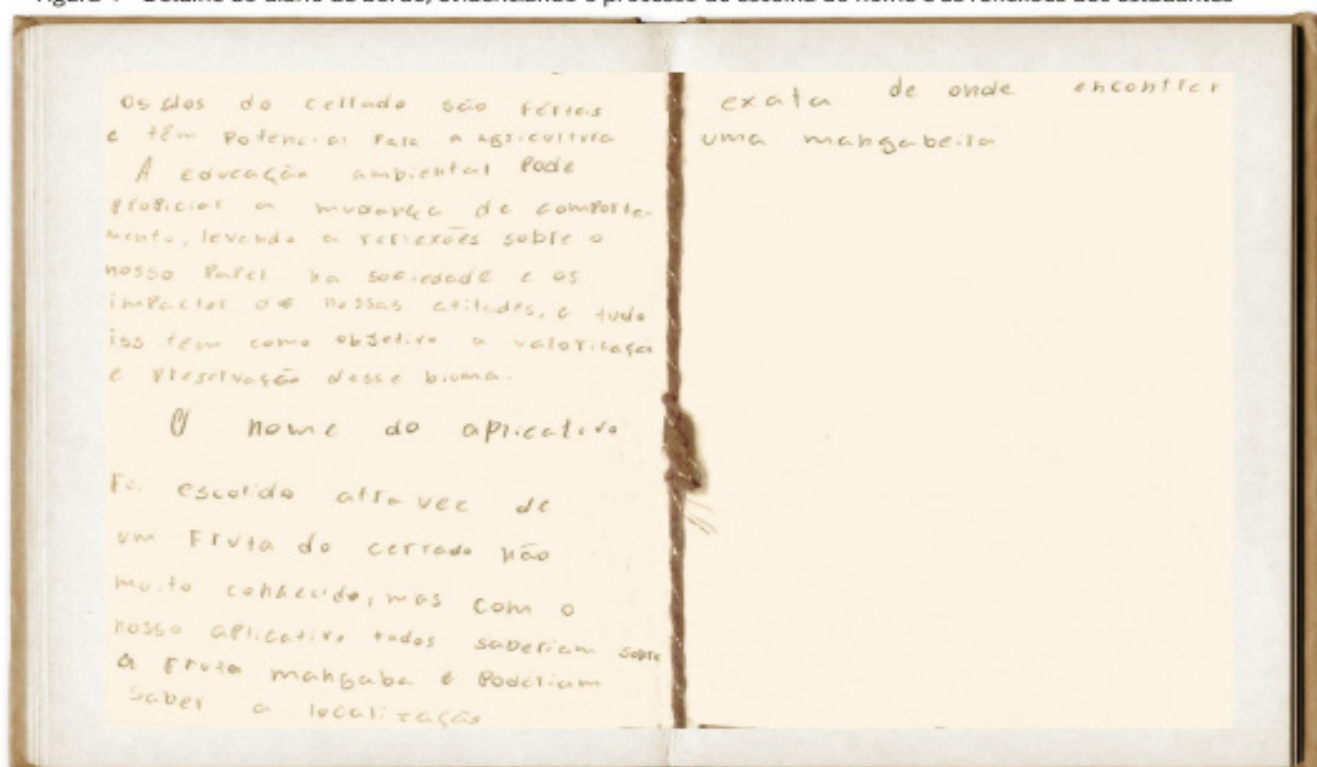 Os slos do cerrado são férteis
e têm potencial para a agricultura
A educação ambiental pode
propiciar a mudança de comporta-
mento, levando a reflexões sobre o
nosso papel na sociedade e os
impactos de nossas atitudes, e tudo
iss tem como objetivo a valorizaçã
e preservação desse bioma.
O nome do aplicativo
Foi escolido atravez de
um Fruta do cerrado não
muito conhecido, mas com o
nosso aplicativo todos saberiam sobre
a fruta mangaba e poderiam
saber a localização
exata de onde encontrar
uma mangabeira